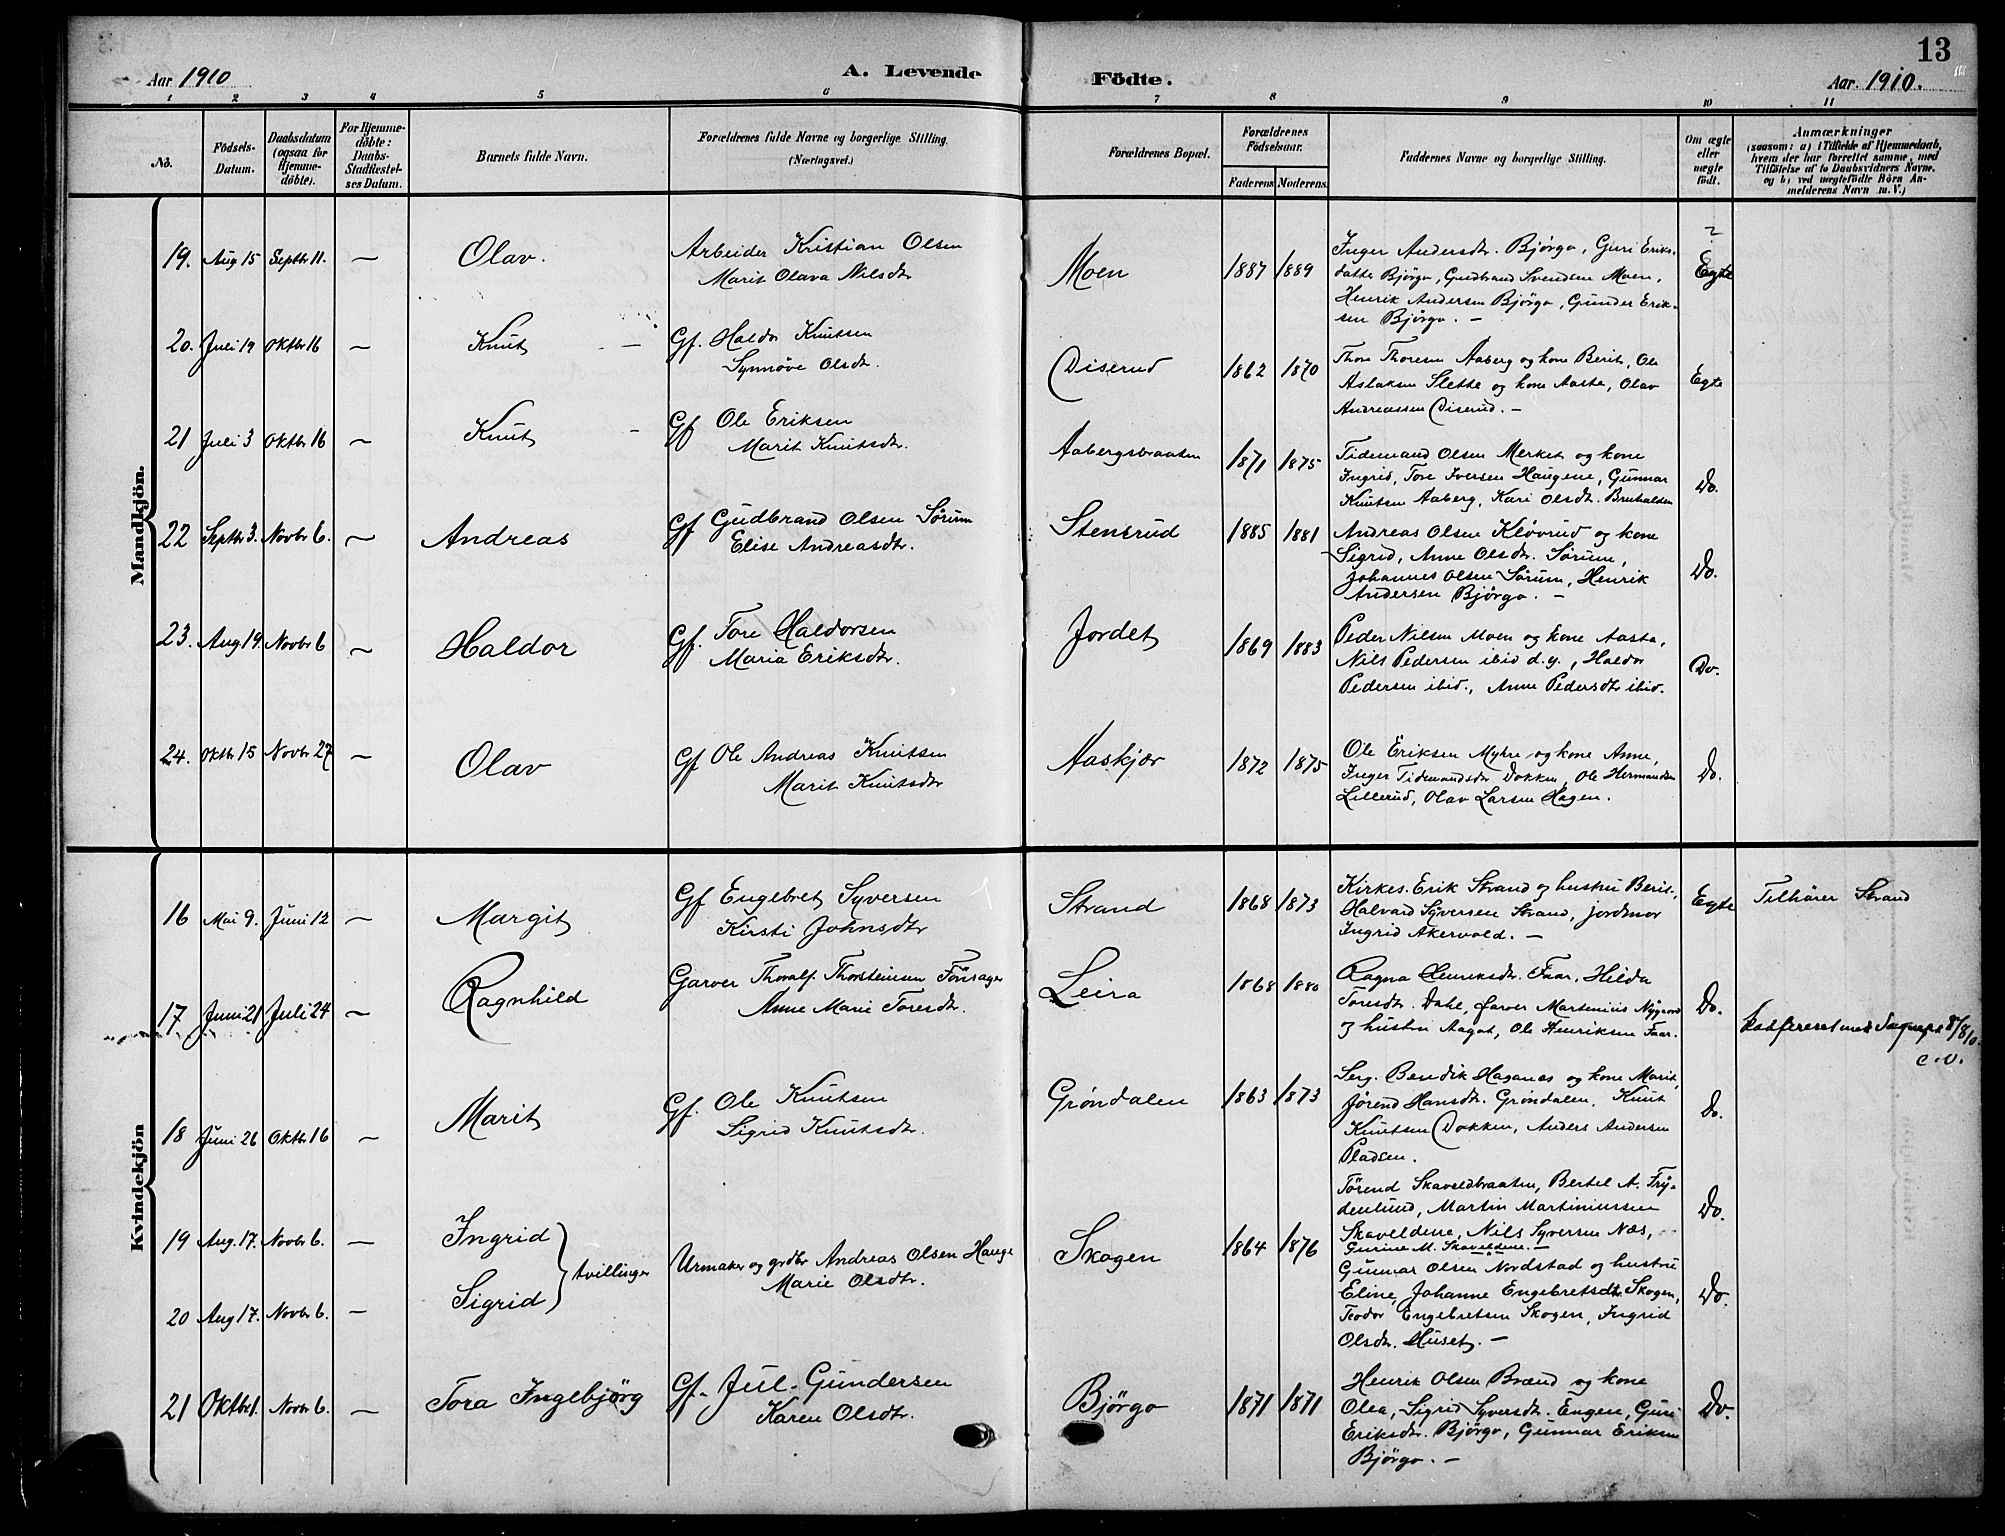 13
Aar 1910
A. Levende Födte.
Aar 1910.
1 2 3 4 5 6 7 8 9 10 11
No.
Födsels-Datum.
Daabsdatum (ogsaa for Hjemme-döbte).
For Hjemme-döbte: Daabs-Stadfæstel-ses Datum.
Barnets fulde Navn.
Forældrenes fulde Navne og borgerlige Stilling.
(Næringsvei.)
Forældrenes Bopæl.
Forældrenes Födselsaar.
Faderens Moderens.
Faddernes Navne og borgerlige Stilling.
Om ægte eller uægte födt.
Anmærkninger
(saasom: a) i Tilfælde af Hjemmedaab,
hvem der har forrettet samme, med
Tilföielse af to Daabsvidners Navne.
og b) ved uægtefödte Börn An-
melderens Navn m. V.)
Mandkjön.
19. Aug 15 Septbr 11. — Olav.
Arbeider Kristian Olsen
Marit Olava Nilsdtr
Moen 1887 1889
Inger Andersdtr. Bjørgo, Guri Eriks-
datter Bjørgo, Gudbrand Svendsen Moen,
Henrik Andersen Bjørgo, Gunder Erik-
sen Bjørgo. —
Egte
20. Juli 19 Oktbr 16 — Knut —
Gf. Haldor Knutsen
Synnøve Olsdtr.
Diserud 1862 1870
Thore Thoresen Aaberg og kone Berit, Ole
Aslaksen Slette og kone Aaste, Olav
Andreassen Diserud. —
Egte
21 Juli 3 Oktbr 16 — Knut —
Gf Ole Eriksen
Marit Knutsdtr.
Aabergsbraaten 1871 1875
Tidemand Olsen Merket og kone
Ingrid, Tore Iversen Haugene, Gunnar
Knutsen Aaberg, Kari Olsdtr. Bruhalden
Do.
22 Septbr 3. Novbr 6. — Andreas
Gf Gudbrand Olsen Sørum
Elise Andreasdtr.
Stensrud 1885 1881
Andreas Olsen Kløvrud og kone
Sigrid, Anne Olsdtr. Sørum,
Johannes Olsen Sørum, Henrik
Andersen Bjørgo. —
Do.
23. Aug 19. Novbr 6 — Haldor
Gf. Tore Haldorsen
Maria Eriksdtr.
Jordet 1869 1883
Peder Nilsen Moen og kone Aasta,
Nils Pedersen ibid d.y., Haldor
Pedersen ibid., Anne Pedersdtr ibid.
Do.
24. Oktbr 15 Novbr 27 — Olav
Gf Ole Andreas Knutsen
Marit Knutsdtr
Aaskjær 1872 1875
Ole Eriksen Myhre og kone Anne,
Inger Tidemandsdtr Dokken, Ole Hermandsen
Lillerud, Olav Larsen Hagen.
Do.
Kvindekjön
16 Mai 9. Juni 12 — Margit
Gf Engebret Syversen
Kirsti Johnsdtr
Strand 1868 1873
Kirkes. Erik Strand og hustru Berit,
Halvard Syversen Strand, jordmor
Ingrid Akervold. —
Egte
Tilhører Strand
17 Juni 21 Juli 24 — Ragnhild
Garver Thoralf Thorsteinsen Fønsager
Anne Marie Toresdtr.
Leira 1868 1880
Ragna Henriksdtr. Faar, Hilda
Toresdtr. Dahl, Farver Martinius Nygaard
og hustru Aagot, Ole Henriksen Faar.
Do.
8/8 10.
18 Juni 26 Oktbr 16 — Marit
Gf. Ole Knutsen
Sigrid Knutsdtr.
Grøndalen 1863 1873
Serg. Bendik Haganes og kone Marit,
Jørend Hansdtr. Grøndalen, Knut
Knutsen Dokken, Anders Andersen
Pladsen.
Do.
19 Aug. 17. Novbr 6. — Ingrid
tvillinger
Urmaker og grdbr Andreas Olsen Hauge
Marie Olsdtr.
Skogen 1864 1876
Tørend Skaveldbraaten, Bertel A. Fry-
denlund, Martin Martiniussen
Skaveldene, Nils Syversen Næs,
Gurine M. Skaveldene. —
Do.
20 Aug 17. Novbr 6. — Sigrid
Gunnar Olsen Nordstad og hustru
Eline, Johanne Engebretsdtr Skogen,
Teodor Engebretsen Skogen, Ingrid
Olsdtr. Huset. —
Do.
21 Oktbr 1. Novbr 6. — Tora Ingebjørg
Gf. Jul. Gundersen
Karen Olsdtr.
Bjørgo 1871 1871
Henrik Olsen Brænd og kone
Olea, Sigrid Syversdtr. Engen, Guri
Eriksdtr. Bjørgo, Gunnar Eriksen
Bjørgo. —
Do.